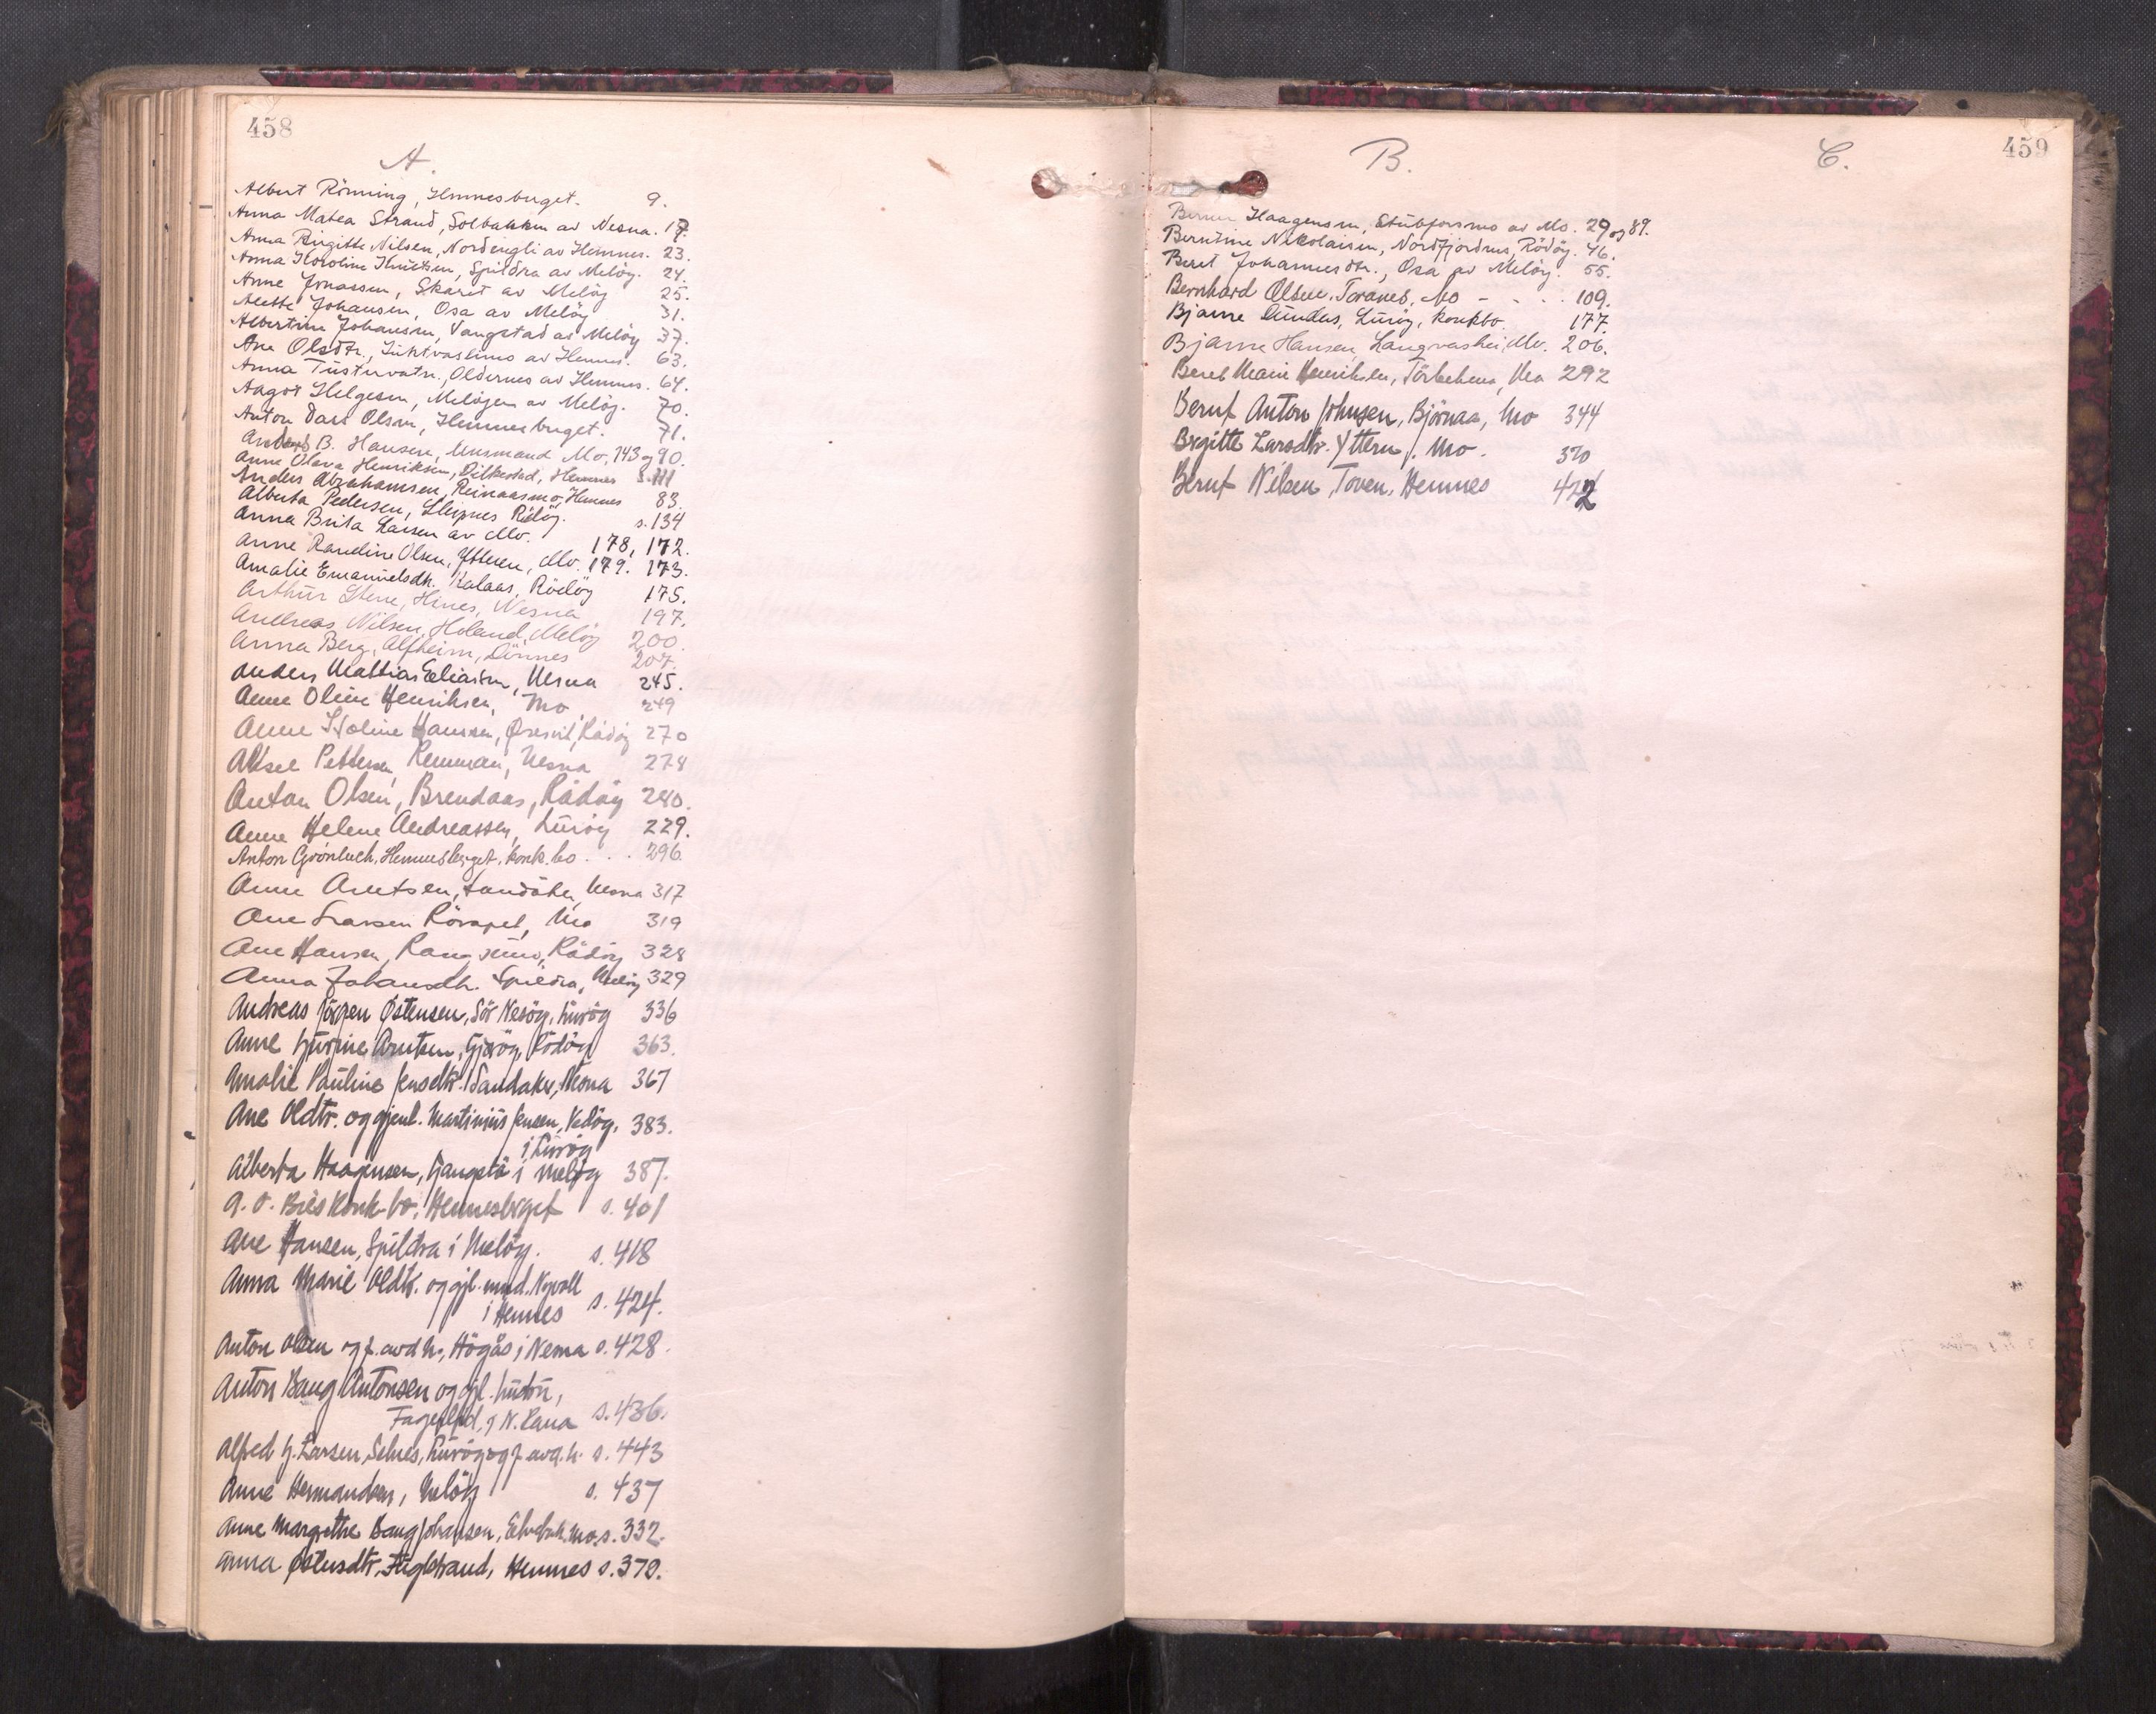 458
A.
Albert Rönning, Hemnesberget. 9.
Anna Matea Strand, Solbakken av Nesna. 17.
Anna Birgitte Nilsen, Nordengli av Hemnes. 23.
Anna Karoline Knutsen, Spildra av Melöy. 24.
Anne Jonassen, Skaret av Melöy 25.
Alette Johansen, Osa av Melöy 31.
Albertine Johansen, Vangstad av Melöy 37.
Ane Olsdtr., av Hemnes. 63.
Anna Tustervatn., Oldernes av Hemnes. 64.
Aagot Helgesen, Melöyen av Melöy. 70.
Anton Dass Olsen, Hemnesberget. 71.
Anders B. Hansen, Mo, 143 og 90.
Anne Olava Henriksen, Hemnes s. 111
Anders Abrahamsen, Reinaasmo, Hemnes 83.
Alberta Pedersen, Sleipnes Rödöy. s. 134
Anna Brita Larsen av Mo. 178, 172.
Anne Randine Olsen, Ytteren, Mo. 179. 173.
Amalie Emanuelsdtr. Kalaas, Rödöy 175.
Arthur Stene, Hines, Nesna 197.
Andreas Nilsen, Holand, Melöy 200.
Anna Berg, Alfheim, Dönnes 207.
Anders Mathias Eliassen, Nesna 245.
Anne Oline Henriksen, Mo 249
Anne Hansen, Rödöy 270
Aksel Pettersen, Remman, Nesna 278
Anton Olsen, Brendaas, Rödöy 280.
Anne Helene Andreassen, Luröy 229.
Anton Grönbech, Hemnesberget, konk.bo . . . 296
Anne Arntsen, Sandåker, Nesna 317
Ane Larsen Mo 319
Ane Hansen, Rödöy 328
Anna Johansdtr. Spildra, Melöy 329
Andreas Jörgen Østensen, Sör Nesöy, Luröy 336
Anne Arntsen, Gjeröy, Rödöy 363.
Amalie Pauline Jensdtr. Sandaker, Nesna 367
Ane Oldtr. og gjenl. Martinius Jensen, 383.
i Luröy
Alberta Haagensen, i Melöy 387.
A. O. Bies konk. bo, Hemnesberget s. 401
Ane Hansen, Spildra i Melöy. s. 418
Anna Marie Oldtr. og gjl. mand. Nyvoll
i Hemnes s. 424.
Anton Olsen og f. avd. h., Högås i Nesna s. 428.
Anton Baug Antonsen og gjl. hustru,
N. Rana s. 436.
Alfred H. Larsen, Selnes, Luröy og f. avd. h. s. 443
Anne Hermandsen, Melöy s. 437
Anne Margrethe Baug Johansen, Mo s. 332.
Anna Østensdtr. Fuglstrand, Hemnes s. 370.
459
B.
C.
Berner Haagensen, Stubforsmo av Mo. 29 og 89.
Berntine Nikolaisen, Nordfjordnes, Rödöy. 46.
Beret Johannesdtr., Osa av Melöy. 55.
Bernhard Olsen, Toranes, Mo - - . . 109.
Bjarne Dundas, Luröy, konkbo. 177.
Bjarne Hansen, Langvashei, Mo. 206.
Beret Marie Henriksen, Mo 292
Bernt Anton Johnsen, Björnaa, Mo 344
Birgitte Larsdtr. Yttern, Mo. 370
Bernt Nilsen, Toven, Hemnes 422